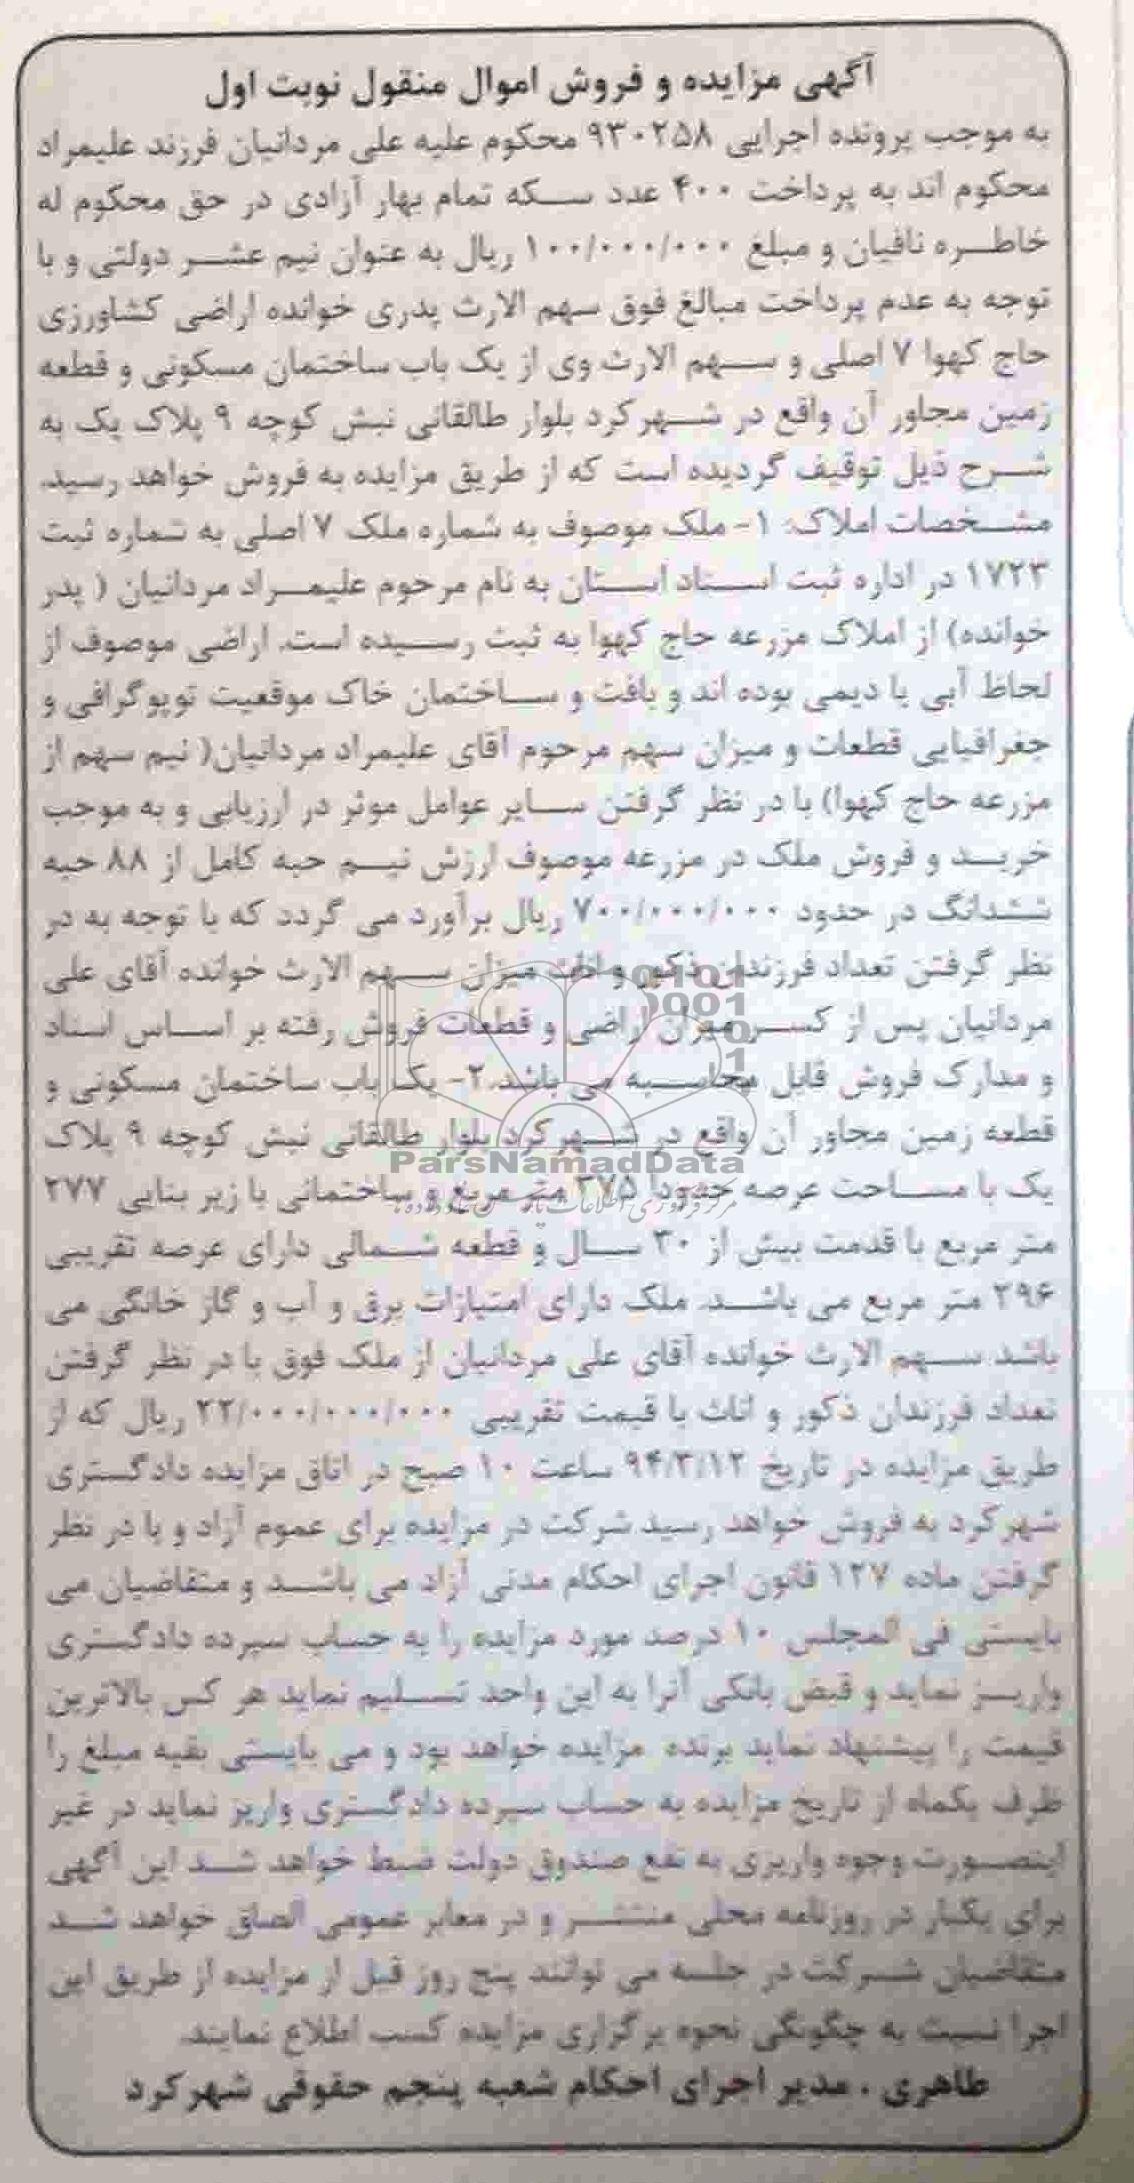 آگهی مزایده و فروش اموال منقول نوبت اول
به موجب پرونده اجرایی ۹۳۰۲۵۸ محکوم علیه علی مردانیان فرزند علیمراد
محکوم اند به پرداخت ۴۰۰ عدد سکه تمام بهار آزادی در حق محکوم له
خاطره نافیان و مبلغ ۱۰۰/۰۰۰/۰۰۰ ریال به عنوان نیم عشر دولتی و با
توجه به عدم پرداخت مبالغ فوق سهم الارث پدری خوانده اراضی کشاورزی
حاج کهوا ۷ اصلی و سهم الارث وی از یک باب ساختمان مسکونی و قطعه
زمین مجاور آن واقع در شهرکرد بلوار طالقانی نبش کوچه ۹ پلاک یک به
شرح ذیل توقیف گردیده است که از طریق مزایده به فروش خواهد رسید.
مشخصات املاک: ۱- ملک موصوف به شماره ملک ۷ اصلی به شماره ثبت
۱۷۲۳ در اداره ثبت اسناد استان به نام مرحوم علیمراد مردانیان ( پدر
خوانده) از املاک مزرعه حاج کهوا به ثبت رسیده است. اراضی موصوف از
لحاظ آبی یا دیمی بوده اند و بافت و ساختمان خاک موقعیت توپوگرافی و
جغرافیایی قطعات و میزان سهم مرحوم آقای علیمراد مردانیان( نیم سهم از
مزرعه حاج کهوا) با در نظر گرفتن سایر عوامل موثر در ارزیابی و به موجب
خرید و فروش ملک در مزرعه موصوف ارزش نیم حبه کامل از ۸۸ حبه
ششدانگ در حدود ۷۰۰/۰۰۰/۰۰۰ ریال برآورد می گردد که با توجه به در
نظر گرفتن تعداد فرزندان ذکور و اناث میزان سهم الارث خوانده آقای علی
مردانیان پس از کسر میزان اراضی و قطعات فروش رفته بر اساس اسناد
و مدارک فروش قابل محاسبه می باشد.۲- یک باب ساختمان مسکونی و
قطعه زمین مجاور آن واقع در شهرکرد بلوار طالقانی نبش کوچه ۹ پلاک
ParsNamadData
یک با مساحت عرصه حدودا ۳۷۵ متر مربع و ساختمانی با زیر بنایی ۲۷۷
متر مربع با قدمت بیش از ۳۰ سال و قطعه شمالی دارای عرصه تقریبی
۲۹۶ متر مربع می باشد. ملک دارای امتیازات برق و آب و گاز خانگی می
باشد سهم الارث خوانده آقای علی مردانیان از ملک فوق با در نظر گرفتن
تعداد فرزندان ذکور و اناث با قیمت تقریبی ۲۲/۰۰۰/۰۰۰/۰۰۰ ریال که از
طریق مزایده در تاریخ ۹۴/۳/۱۲ ساعت ۱۰ صبح در اتاق مزایده دادگستری
شهرکرد به فروش خواهد رسید شرکت در مزایده برای عموم آزاد و با در نظر
گرفتن ماده ۱۲۷ قانون اجرای احکام مدنی آزاد می باشد و متقاضیان می
بایستی فی المجلس ۱۰ درصد مورد مزایده را به حساب سپرده دادگستری
واریز نماید و قبض بانکی آنرا به این واحد تسلیم نماید هر کس بالاترین
قیمت را پیشنهاد نماید برنده مزایده خواهد بود و می بایستی بقیه مبلغ را
ظرف یکماه از تاریخ مزایده به حساب سپرده دادگستری واریز نماید در غیر
اینصورت وجوه واریزی به نفع صندوق دولت ضبط خواهد شد این آگهی
برای یکبار در روزنامه محلی منتشر و در معابر عمومی الصاق خواهد شد
متقاضیان شرکت در جلسه می توانند پنج روز قبل از مزایده از طریق این
اجرا نسبت به چگونگی نحوه برگزاری مزایده کسب اطلاع نمایند.
طاهری . مدیر اجرای احکام شعبه پنجم حقوقی شهرکرد